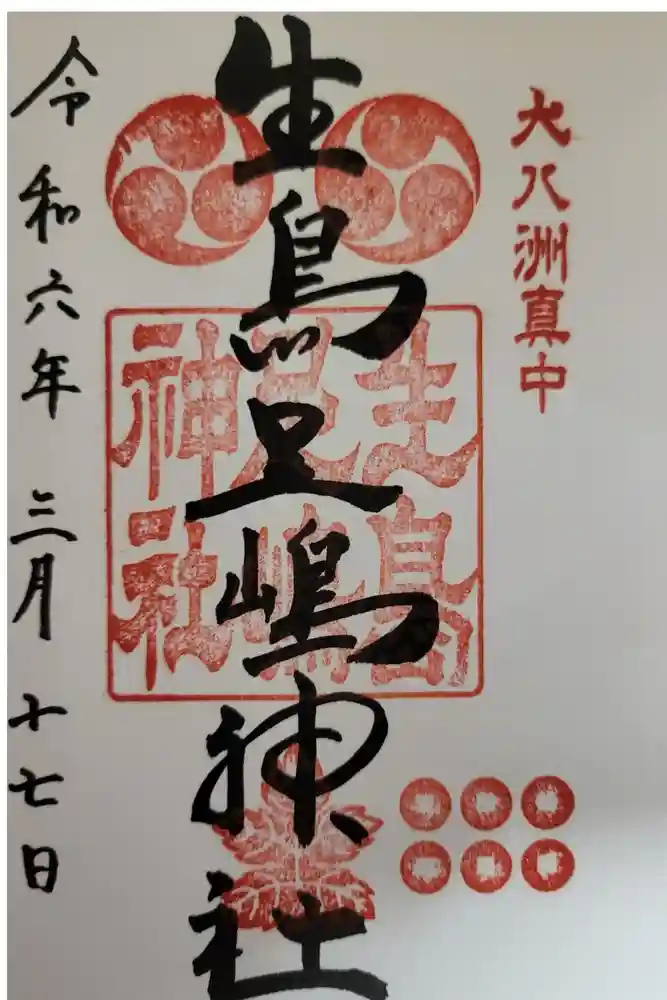 大八洲真中
生島足嶋神社
生島
足嶋
神社
令和六年三月十七日